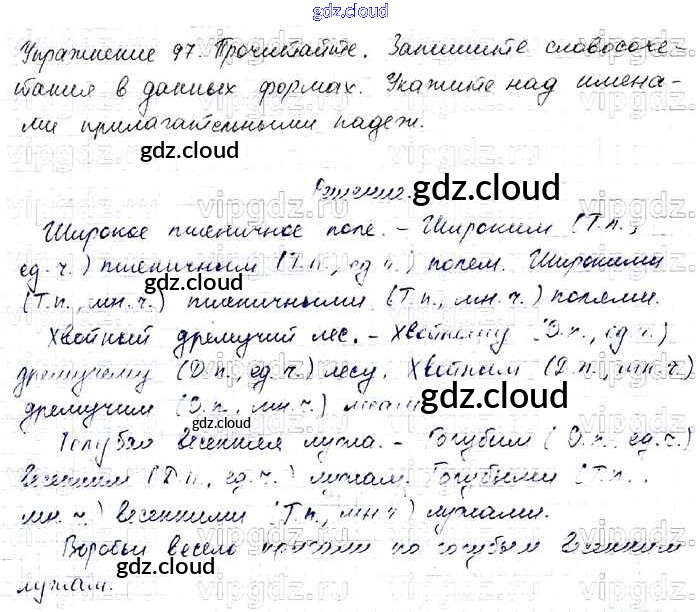 gdz.cloud
Упражнение 97. Прочитайте. Запишите словосоче-
тания в данных формах. Укажите над имена-
ми прилагательными падеж.
gdz.cloud
Решение. gdz.cloud
Широкое пшеничное поле. - Широким (Т.п.,
ед.ч.) пшеничным (Т.п., ед.ч.) полем. Широкими
(Т.п., мн.ч.) пшеничными (Т.п., мн.ч.) полями.
gdz.cloud
Хвойный дремучий лес. - Хвойному (Д.п., ед.ч.)
дремучему (Д.п., ед.ч.) лесу. Хвойным (Д.п., мн.ч.)
дремучим (Д.п., мн.ч.) лесам
gdz.cloud
весенняя лужа. - Голубым (Д.п., ед.ч.)
весенним (Д.п., ед.ч.) лужам. Голубыми (Т.п.,
мн.ч.) весенними (Т.п., мн.ч.) лужами.
gdz.cloud
Воробьи весело по голубым весенним
лужам.
gdz.cloud